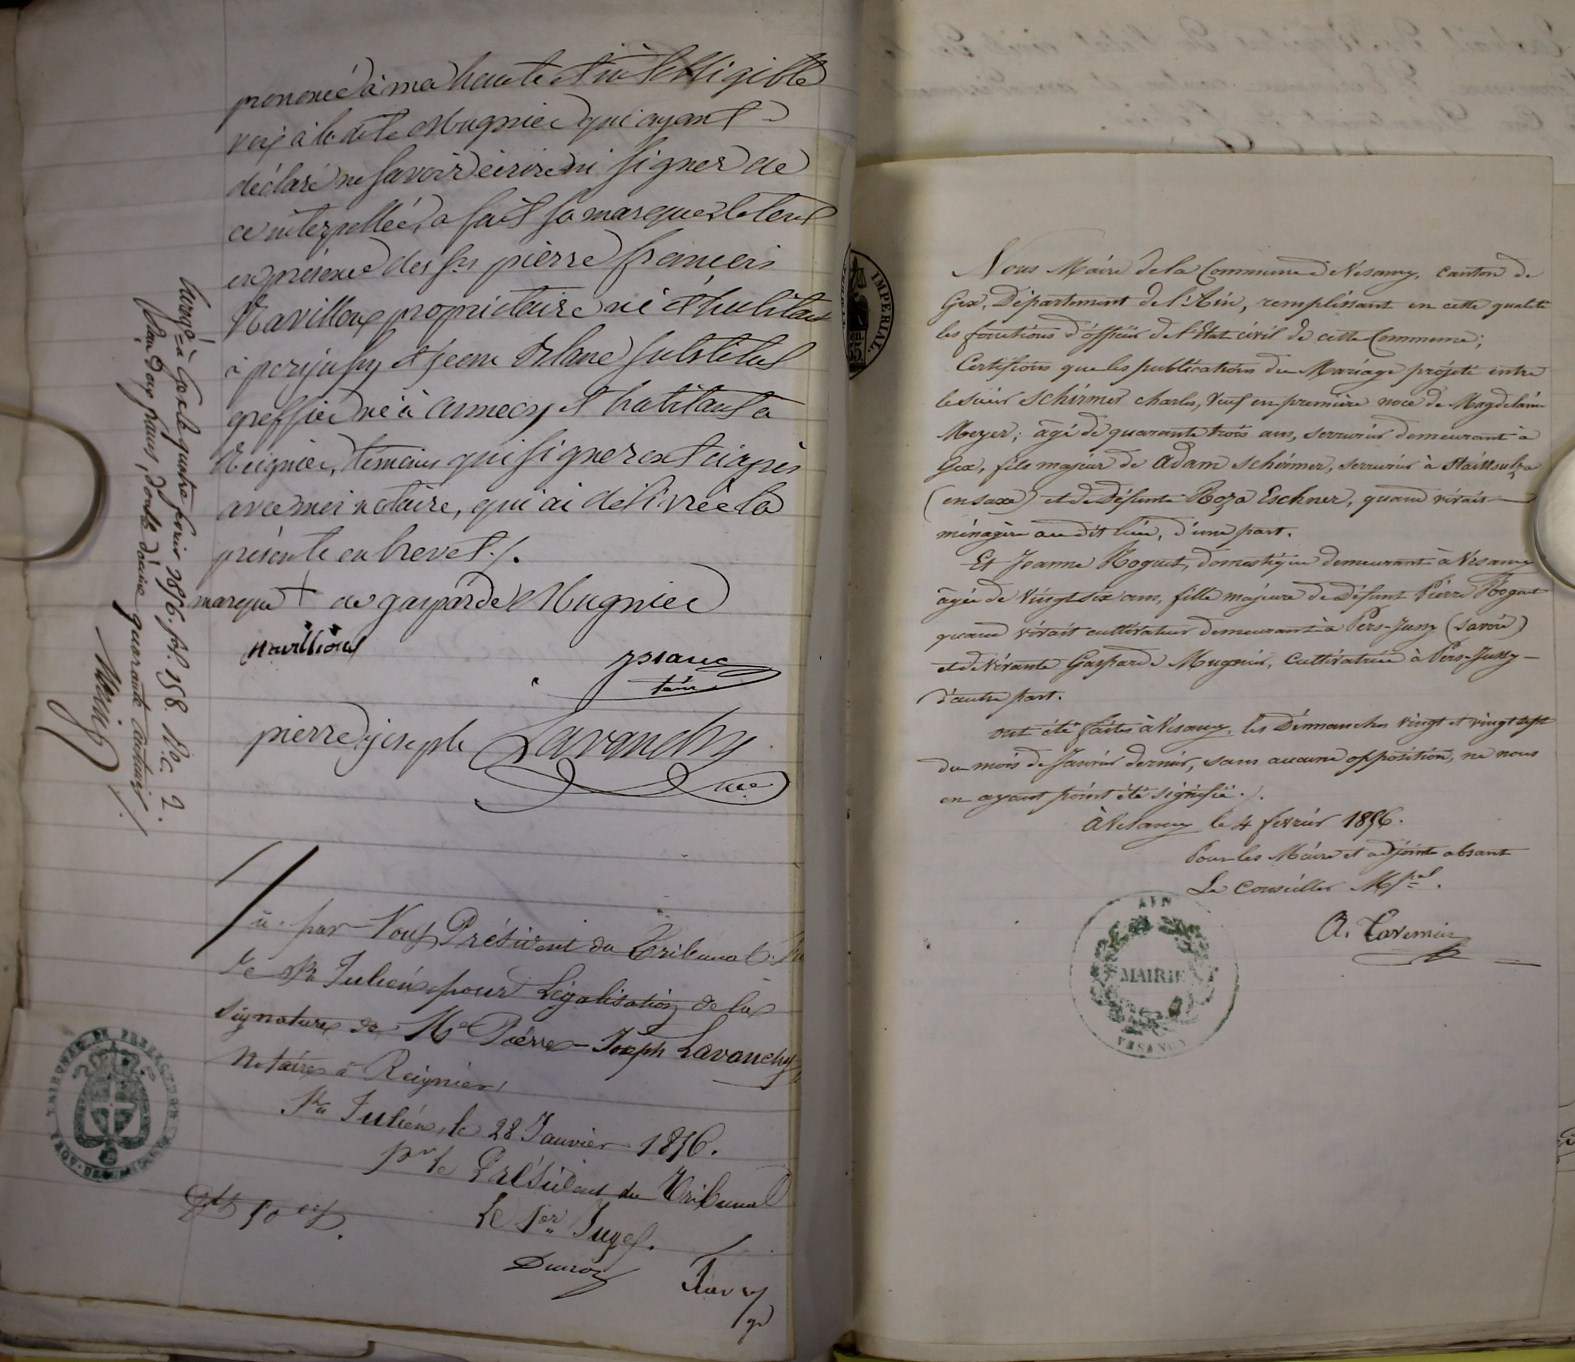 prononcé à ma haute et intelligible
voix à la dite Mugnier qui ayant
déclaré ne savoir écrire ni signer de
ce interpellée, a fait sa marque le tout
en présence des srs pierre françois
Navilloux propriétaire né et habitant
à persjussy et jean Blanc substitut
greffier né à annecy et habitant à
Reignier, témoins qui signeront ci après
avec moi notaire, qui ai délivré la
présente en brevet /.
marque + de gasparde Mugnier
Navillioux
J Blanc
tém
pierre joseph Lavanchy
nre
Vu par Nous Président du Tribunal
de St Julien pour Légalisation de la
signature de Me Pierre-Joseph Lavanchy
Notaire à Reignier,
St Julien, le 28 Janvier 1856.
pr le Président du Tribunal
Le 1er Juge.
50
à Gex le quatre février 1856. fol. 158. Ro. c. 2.
deux francs, double décime quarante centimes /.
IMPERIAL.
Nous Maire de la Commune de Vésancy, canton de
Gex, Département de l'Ain, remplissant en cette qualité
les fonctions d'officier de l'Etat civil de cette Commune;
Certifions que les publications du Mariage projeté entre
le sieur Schirmer charles, Veuf en première noce de Magdelaine
Meyer; âgé de quarante trois ans, serrurier demeurant à
Gex, fils majeur de Adam Schirmer, serrurier à Staittsulza
(en saxe) et de Défunte Roza Eschner, quand vivait
ménagère au dit lieu, d'une part.
Et Jeanne Roguet, domestique demeurant à Vésancy
âgée de Vingt six ans, fille majeure de Défunt Pierre Roguet
quand vivait cultivateur demeurant à Pers-Jussy (savoie)
et de Vivante Gasparde Mugnier, Cultivatrice à Pers-Jussy
d'autre part.
ont été faites à Vésancy, les Dimanches vingt et vingt sept
du mois de Janvier dernier, sans aucune opposition, ne nous
en ayant point été signifié /.
à Vésancy le 4 février 1856.
Pour les Maire et adjoint absant
Le Conseiller Mpal.
AIN
MAIRIE
VESANCY